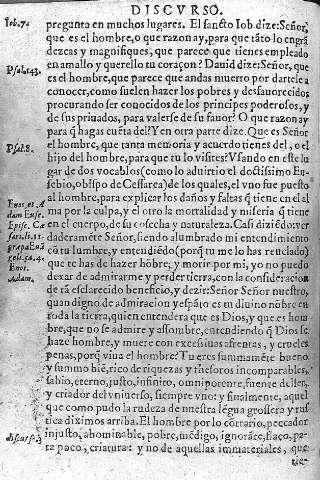 DISCVRSO.
Iob.7.
pregunta en muchos lugares. El sancto Iob dize: Señor,
que es el hombre, o que razon ay, para que tãto lo engrã
dezcas y magnifiques, que parece que tienes empleado
en amallo y querello tu coraçon? Dauid dize: Señor, que
Psal.143.
es el hombre, que parece que andas muerto por dartele a
conocer, como suelen hazer los pobres y desfauorecidos
procurando ser conocidos de los principes poderosos, y
de sus priuados, para valerse de su fauor? O que razon ay
para q̃ hagas cuẽta del? Y en otra parte dize. Que es Señor
Psal.8.
el hombre, que tanta memoria y acuerdo tienes del, o el
hijo del hombre, para que tu lo visites? Vsando en este lu
gar de dos vocablos (como lo aduirtio el doctissimo Eu-
sebio, obispo de Cessarea) de los quales, el vno fue puesto
al hombre, para explicar los daños y faltas q̃ tiene en el al
ma por la culpa, y el otro la mortalidad y miseria q̃ tiene
en el cuerpo, de su cosecha y naturaleza. Casi diziẽdo: ver
daderamẽte Señor, siendo alumbrado mi entendimiento
cõ tu lumbre, y entendiẽdo (porq̃ tu me lo has reuelado)
que te has de hazer hõbre, y morir por mi, yo no puedo
Enos.
Adam.
dexar de admirarme y perder tierra, con la consideraciõ
de tã esclarecido beneficio, y dezir: Señor Señor nuestro,
quan digno de admiracion y espãto es tu diuino nõbre en
toda la tierra, quien entendera que es Dios, y que es hom
bre, que no se admire y assombre, entendiendo q̃ Dios se
haze hombre, y muere con excessiuas afrentas, y crueles
penas, porq̃ viua el hombre? Tu eres summamẽte bueno
y summo biẽ, rico de riquezas y thesoros incomparables,
sabio, eterno, justo, infinito, omnipotente, fuente del ser,
y criador del vniuerso, siempre vno: y finalmente, aquel
que como pudo la rudeza de nuestra lẽgua grossera y rus
tica diximos arriba. El hombre por lo cõtrario, peccador
discurso.
injusto, abominable, pobre, mẽdigo, ignorãte, flaco, pa-
ra poco, criatura: y no de aquellas immateriales, que